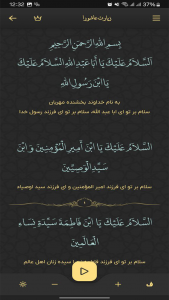 12:32 37%
زیارت عاشورا
بِسْمِ اللَّهِ الرَّحْمَنِ الرَّحِيمِ
اَلسَّلامُ عَلَيْكَ يَا أَبَا عَبْدِ اللَّهِ السَّلامُ عَلَيْكَ
يَا ابْنَ رَسُولِ اللَّهِ
به نام خداوند بخشنده مهربان
سلام بر تو ای ابا عبد الله، سلام بر تو ای فرزند رسول خدا
السَّلامُ عَلَيْكَ يَا ابْنَ أَمِيرِ الْمُؤْمِنِينَ وَ ابْنَ
سَيِّدِ الْوَصِيِّينَ
سلام بر تو ای فرزند امیر المؤمنین و ای فرزند سید اوصیاء
السَّلامُ عَلَيْكَ يَا ابْنَ فَاطِمَةَ سَيِّدَةِ نِسَاءِ
الْعَالَمِينَ
سلام بر تو ای فرزند سیده زنان اهل عالم